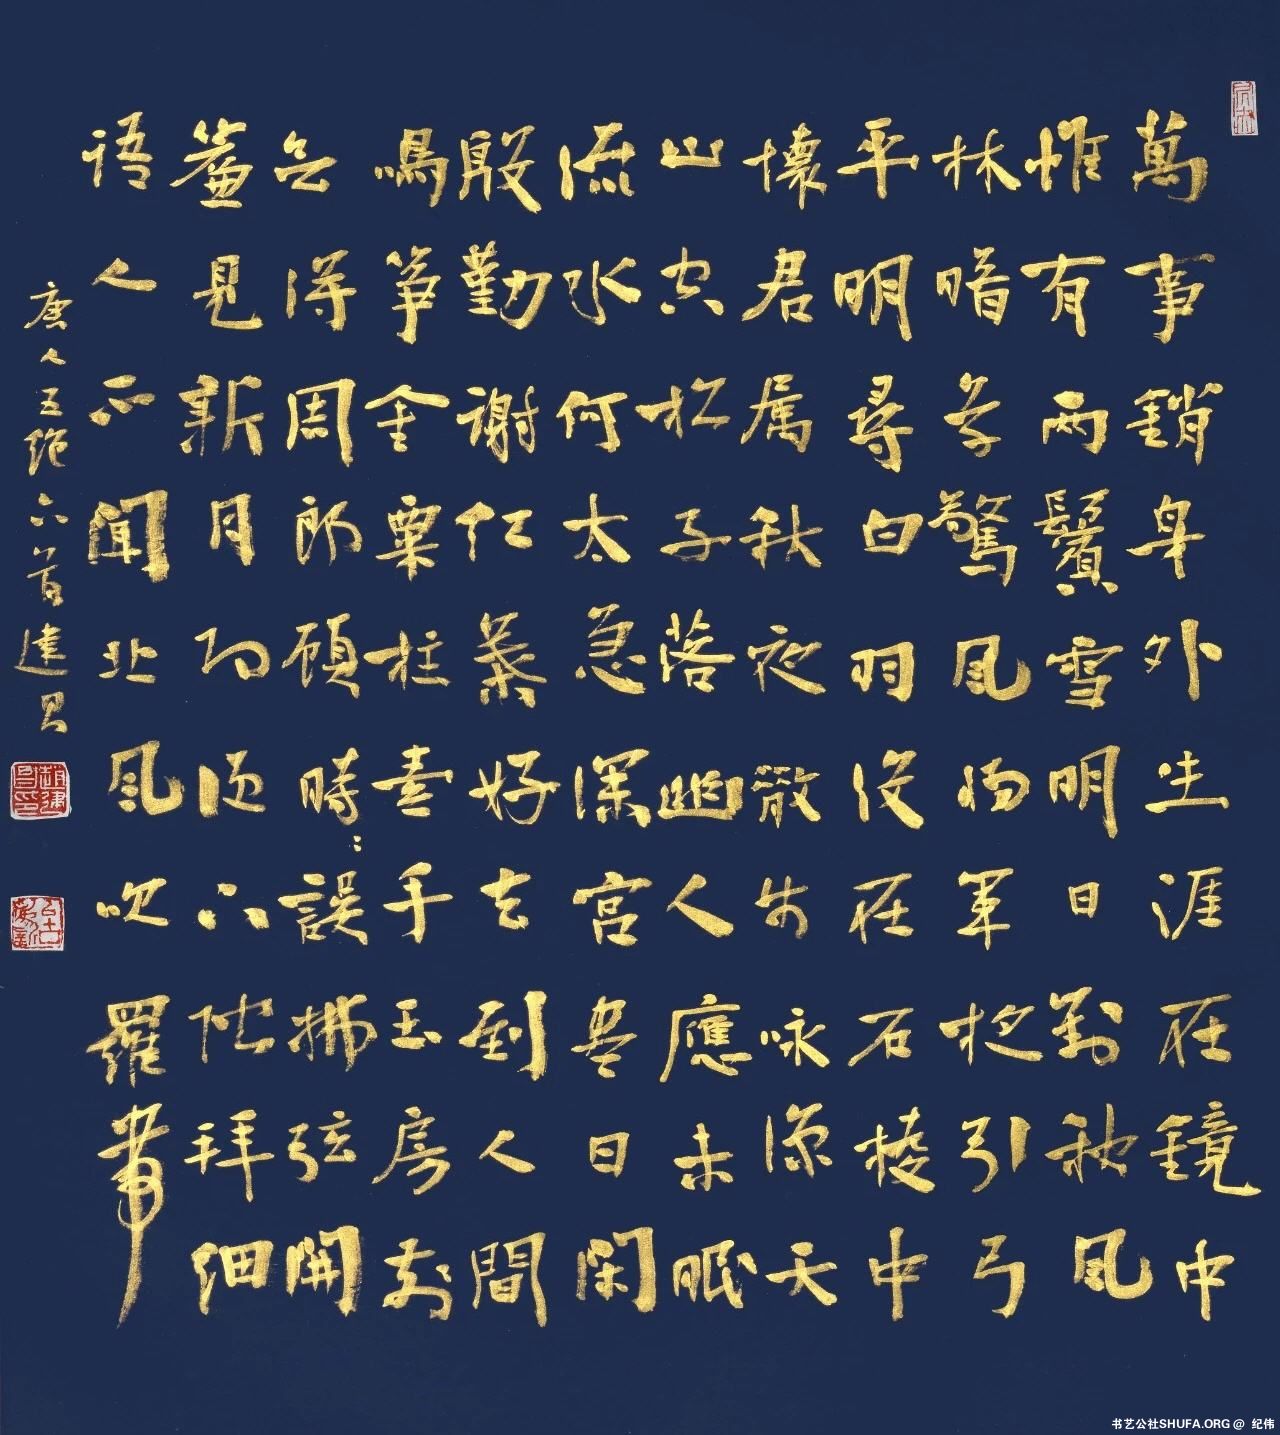 萬事銷身外生涯在鏡中
惟有兩鬢雪明日對秋風
林暗草驚風將軍夜引弓
平明尋白羽沒在石棱中
懷君属秋夜散步咏涼天
山空松子落幽人應未眠
流水何太急深宮盡日閑
殷勤謝紅葉好去到人間
鳴箏金粟柱素手玉房前
欲得周郎顧時:誤拂弦開
簾見新月即便下階拜細
語人不聞北風吹羅帶
唐人五絕六首建昌
书艺公社SHUFA.ORG @ 纪伟